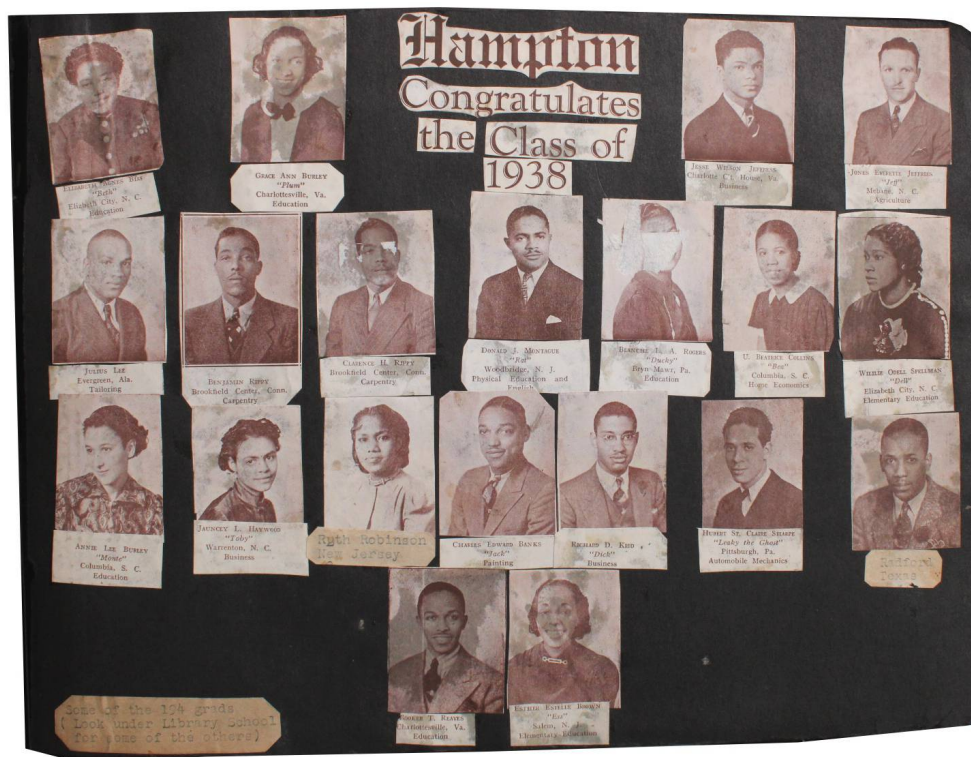 Hampton
Congratulates
the Class of
1938
"Beth"
Elizabeth City, N. C.
Education
Grace Ann Burley
"Plum"
Charlottesville, Va.
Education
Jesse Wilson Jeffress
Charlotte Ct. House, Va.
Business
"Jeff"
Mebane, N. C.
Agriculture
Julius Lee
Evergreen, Ala.
Tailoring
Benjamin Kippy
Brookfield Center, Conn.
Carpentry
Clarence H. Kippy
Brookfield Center, Conn.
Carpentry
Donald J. Montague
"Rot"
Woodbridge, N. J.
Physical Education and
English
Blanche L. A. Rogers
"Ducky"
Bryn Mawr, Pa.
Education
U. Beatrice Collins
"Bea"
Columbia, S. C.
Home Economics
Willie Odell Spellman
"Dell"
Elizabeth City, N. C.
Elementary Education
Annie Lee Burley
"Monte"
Columbia, S. C.
Education
Jauncey L. Haywood
"Toby"
Warrenton, N. C.
Business
Ruth Robinson
New Jersey
Charles Edward Banks
"Jack"
Painting
Richard D. Kidd
"Dick"
Business
Hubert St. Claire Sharpe
"Leaky the Ghost"
Pittsburgh, Pa.
Automobile Mechanics
Radford
Texas
Booker T. Reaves
Charlottesville, Va.
Education
Esther Estelle Brown
"Ess"
Salem, N. J.
Elementary Education
Some of the 194 grads
( Look under Library School
for some of the others)